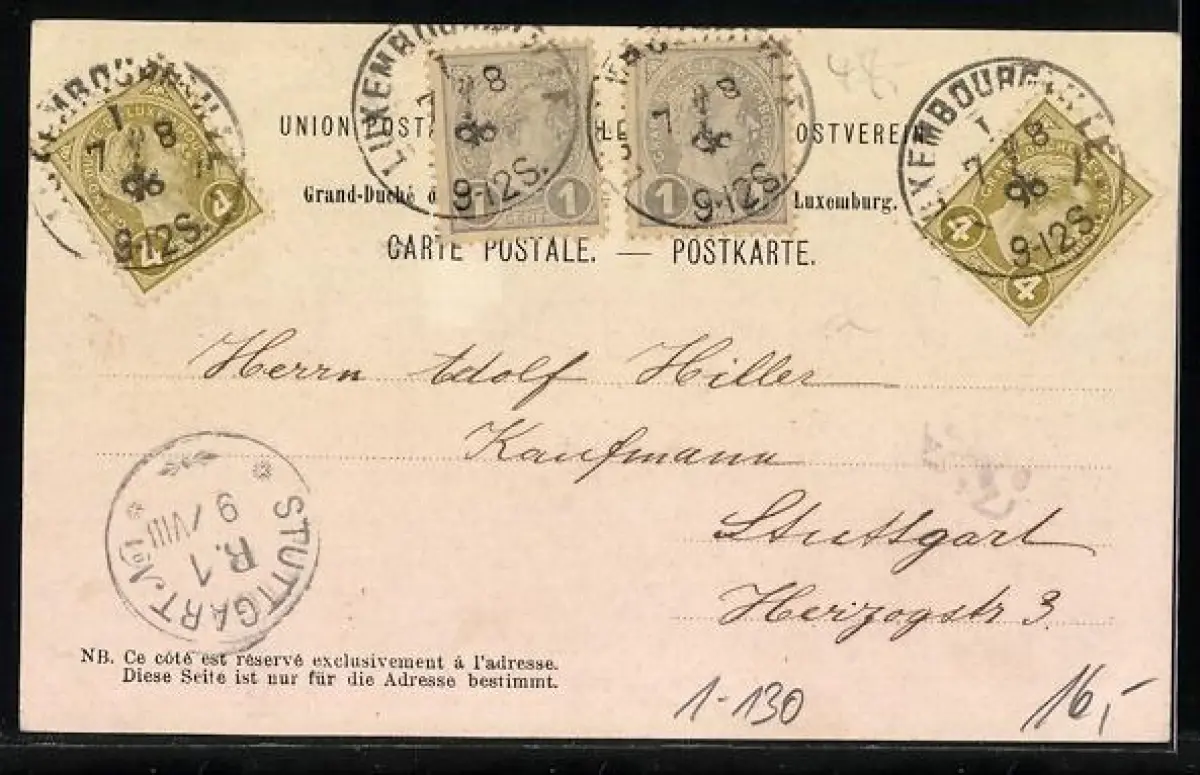 LUXEMBOURG VILLE
7 8
96
9-12S.
4 4
LUXEMBOURG VILLE
7 8
96
9-12S.
1 1
7 8
96
9-12S.
1 1
LUXEMBOURG VILLE
7 8
96
9-12S.
4 4
48,-
UNION POSTA OSTVEREIN
Grand-Duché d Luxemburg.
CARTE POSTALE. — POSTKARTE.
Herrn Adolf Hiller
Kaufmann
Stuttgart
Herzogstr 3.
STUTTGART. No 1
9/VIII
B.1
NB. Ce côté est réservé exclusivement à l'adresse.
Diese Seite ist nur für die Adresse bestimmt.
1-130
16,-